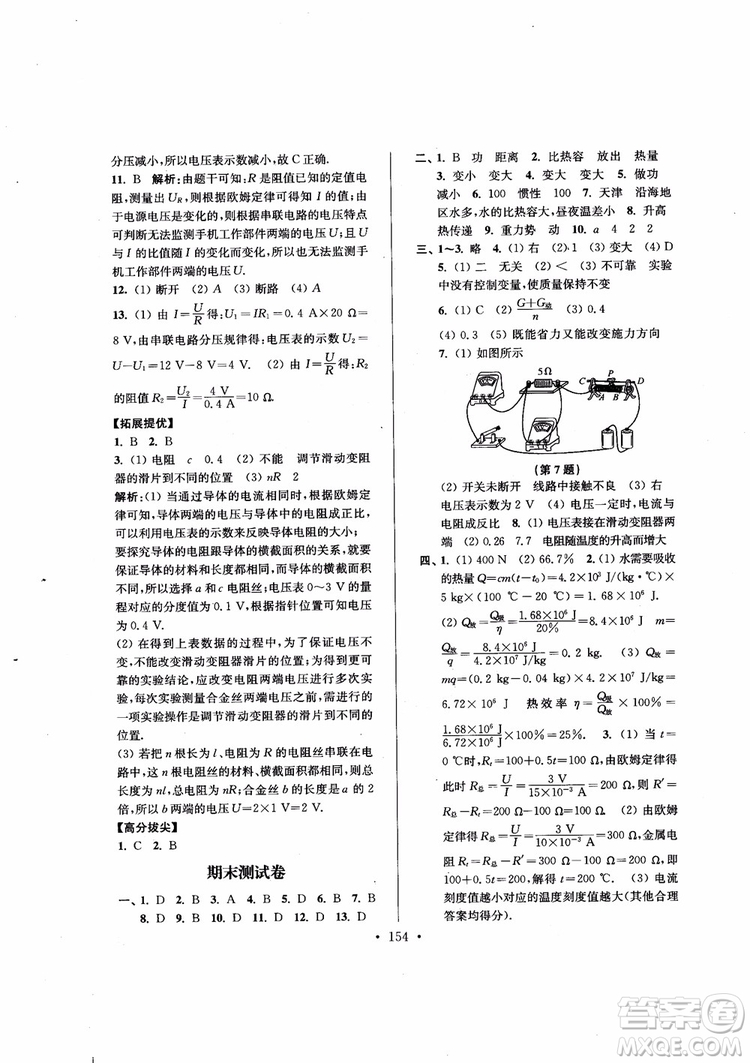 分压减小,所以电压表示数减小,故 C 正确.
11. B 解析:由题干可知:R 是阻值已知的定值电
阻,测量出 U_R,则根据欧姆定律可得知 I 的值;由
于电源电压是变化的,则根据串联电路的电压特点
可判断无法监测手机工作部件两端的电压 U. 由于
U 与 I 的比值随 I 的变化而变化,所以也无法监测手
机工作部件两端的电压 U.
12. (1) 断开 (2) A (3) 断路 (4) A
13. (1) 由 I=U/R 得:U₁=IR₁=0.4 A×20 Ω=
8 V,由串联电路分压规律得:电压表的示数 U₂=
U−U₁=12 V−8 V=4 V. (2) 由 I=U/R 得:R₂
的阻值 R₂=U₂/I=4 V/0.4 A=10 Ω.
【拓展提优】
1. B 2. B
3. (1) 电阻 c 0.4 (2) 不能 调节滑动变阻
器的滑片到不同的位置 (3) nR 2
解析:(1) 当通过导体的电流相同时,根据欧姆定
律可知,导体两端的电压与导体中的电阻成正比,
可以利用电压表的示数来反映导体电阻的大小;
要探究导体的电阻跟导体的横截面积的关系,就要
保证导体的材料和长度都相同,只改变横截面积的
大小,所以应选 a 和 c 电阻丝;电压表 0～3 V 的量
程对应的分度值为 0.1 V,根据指针位置可知电压
为 0.4 V.
(2) 在得到上表数据的过程中,为了保证电压不
变,不能改变滑动变阻器滑片的位置;为了得到更
可靠的实验结论,应改变电阻两端电压进行多次实
验,每次实验测量合金丝两端电压后,为了得到下
一实验操作是调节滑动变阻器的滑片到不同的位
置.
(3) 若把 n 根长为 l、电阻为 R 的电阻丝串联在电
路中,因电阻丝的材料、横截面积相等,此时总长
度为 nl,总电阻为 nR;因为 b 的长度是 a 长度的 2
倍,所以 b 两端的电压 U=2×1 V=2 V.
【高分拔尖】
1. C 2. B
期末测试卷
一、1. D 2. B 3. A 4. B 5. B 6. B 7. B
8. D 9. D 10. D 11. D 12. D 13. D
二、1. B 功 距离 2. 比热容 放出 热量
3. 变小 变大 4. 变大 变大 5. 做功
减小 6. 100 惯性 100 7. 天津 沿海地
区水多,水的比热容大,昼夜温差小 8. 升高
热传递 9. 重力势 动 10. a 4 2 2
三、1~3. 略 4. (1) 右 (2) 1 (3) 变大 (4) D
5. (1) 二 无关 (2) < (3) 不可靠 实验
中没有控制变量,使质量保持不变
6. (1) C (2) (G+G动)/n (3) 0.4
(4) 0.3 (5) 既能省力又能改变施力方向
7. (1) 如图所示
5Ω
C P D
A B
(第 7 题)
(2) 开关未断开 线路中接触不良 (3) 右
电压表示数为 2 V (4) 电压一定时,电流与
与电阻成反比 8. (1) 电压表接在滑动变阻器两
端 (2) 0.26 7.7 电阻随温度的升高而增大
四、1. (1) 400 N (2) 66.7% 2. (1) 水需要吸收
的热量 Q=cm(t−t₀)=4.2×10³ J/(kg·℃)×
5 kg×(100 ℃−20 ℃)=1.68×10⁶ J
(2) Q放=Q吸/η=1.68×10⁶ J/20%=8.4×10⁶ J m=
Q放/q=8.4×10⁶ J/4.2×10⁷ J/kg=0.2 kg (3) Q放=
mq=(0.2 kg−0.04 kg)×4.2×10⁷ J/kg=
6.72×10⁶ J 热效率 η=Q吸/Q放=
1.68×10⁶ J/6.72×10⁶ J×100%=25%. 3. (1) 当 t=
0 ℃时,Rₜ=100+0.5t=100 Ω,由欧姆定律得
此时 R总=U/I=3 V/15×10⁻³ A=200 Ω,所以 R′=
R总−Rₜ=200 Ω−100 Ω=100 Ω (2) 由欧姆
定律得 R总=U/I=3 V/10×10⁻³ A=300 Ω,金属电
阻 Rₜ=R总−R′=300 Ω−100 Ω=200 Ω,所以
100+0.5t=200,解得:t=200 ℃ (3) 电流
刻度值越小对应的温度刻度值越大(其他合理
答案均得分).
• 154 •
答案圈
MXQE.COM